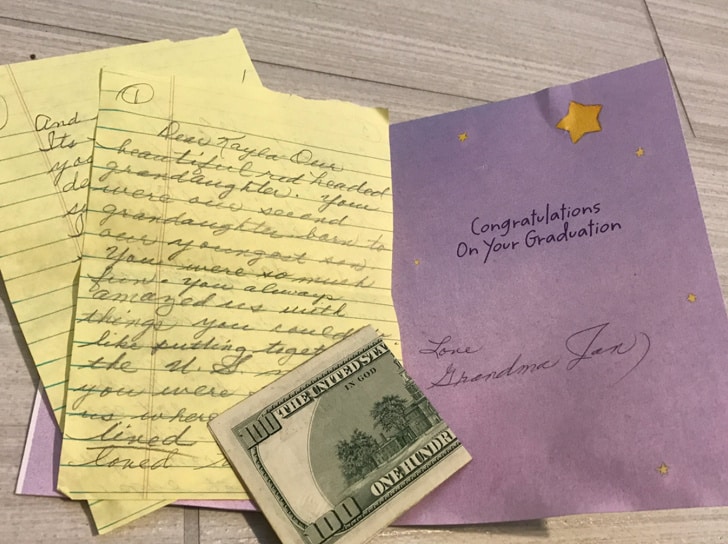 ①
Dear Kayla - Our
beautiful red headed
grandaughter. You
were our second
grandaughter born to
our youngest son
You were so much
fun. You always
amazed us with
things you could
like putting toget
the U.S
you were
us where
lived
loved
1
And
Its
you
de
Congratulations
On Your Graduation
Love
Grandma Jan
THE UNITED STA
IN GOD
100
ONE HUNDR
100